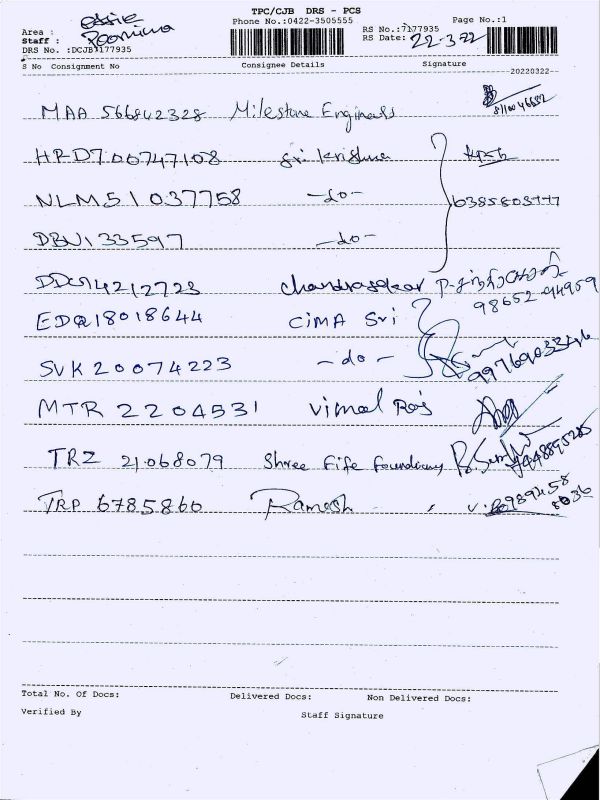 TPC/CJB DRS - PCS
Phone No.:0422-3505555 Page No.:1
Area : Essie
Staff : Poornima
RS No.:7177935
RS Date: 22-3-22
DRS No. :DCJB7177935
S No Consignment No Consignee Details Signature
20220322
MAA 566842328 Milestone Engineers
HRD700747108 Sri Krishna
NLM51037758 -do- 6385803777
DBU133597 -do-
DDG14212723 Chandrasekar 98652 94959
EDQ18018644 CIMA Sri
SVK 20074223 -do- 9976903346
MTR 2204531 Vimal Raj
TRZ 21068079 Shree Fife Foundary
TRP 6785860 Ramesh
Total No. Of Docs: Delivered Docs: Non Delivered Docs:
Verified By Staff Signature